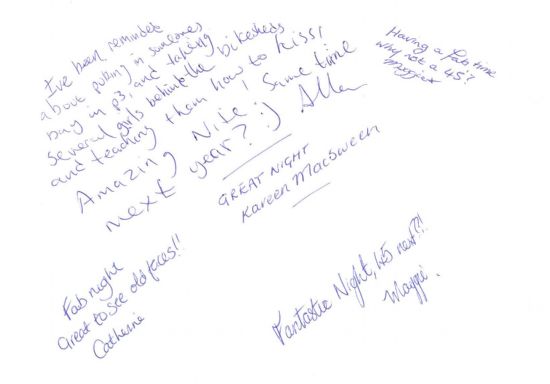 I've been reminded
about puking in someones
bag in p3, and taking
several girls behind the bikesheds
and teaching them how to kiss,
Amazing Nite, same time
next year? :) Allan
Having a fab time
why not a 45?
GREAT NIGHT
Kareen MacSween
Fab night
Great to see old faces!!
Catherine
Fantastic Night, 45 next?!!